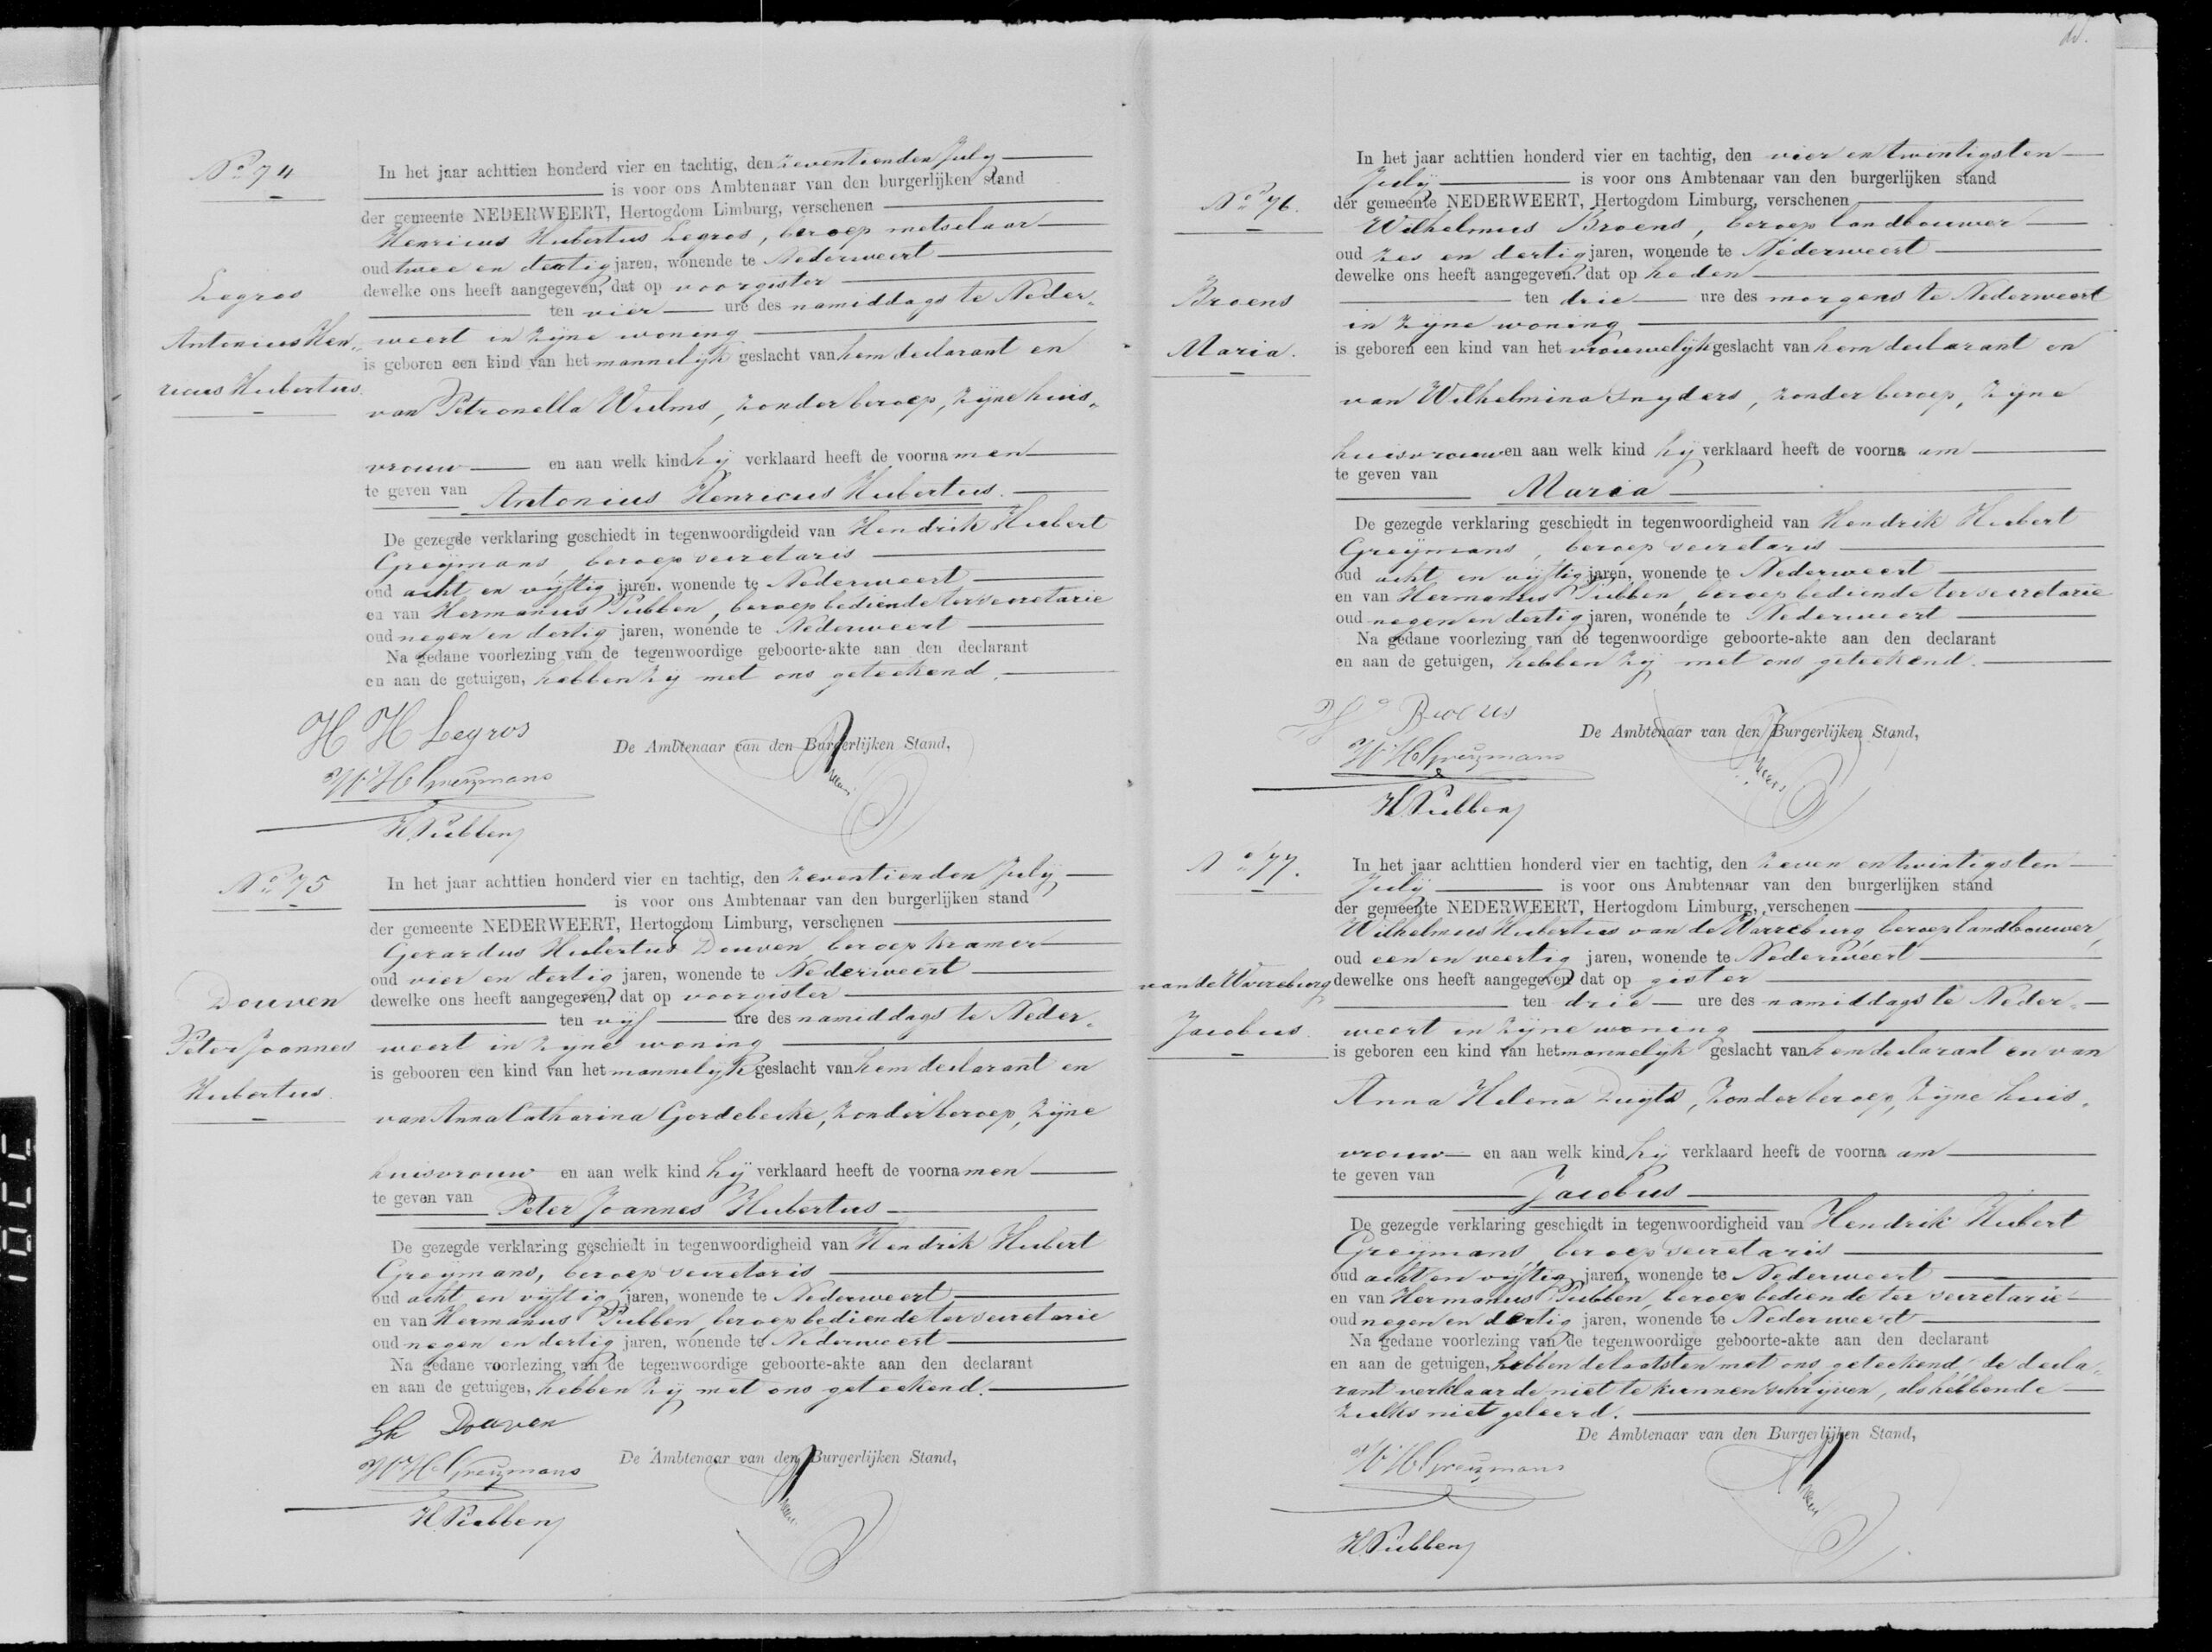 No 74
Legros
Antonius Hen-
ricus Hubertus.
In het jaar achttien honderd vier en tachtig, den zeventienden July
is voor ons Ambtenaar van den burgerlijken stand
der gemeente NEDERWEERT, Hertogdom Limburg, verschenen
Henricus Hubertus Legros, beroep metselaar
oud twee en dertig jaren, wonende te Nederweert
dewelke ons heeft aangegeven, dat op voorgister
ten vier ure des namiddags te Neder-
weert in zijne woning
is geboren een kind van het mannelijk geslacht van hem declarant en
van Petronella Wulms, zonder beroep, zijne huis-
vrouw en aan welk kind hij verklaard heeft de voornamen
te geven van Antonius Henricus Hubertus.
De gezegde verklaring geschiedt in tegenwoordigdeid van Hendrik Hubert
Greijmans, beroep secretaris
oud acht en vijftig jaren, wonende te Nederweert
en van Hermanus Pubben, beroep bediende ter secretarie
oud negen en dertig jaren, wonende te Nederweert
Na gedane voorlezing van de tegenwoordige geboorte-akte aan den declarant
en aan de getuigen, hebben zij met ons geteekend.
H H Legros
De Ambtenaar van den Burgerlijken Stand,
H H Greijmans
H. Pubben
No 75
Douven
Peter Joannes
Hubertus.
In het jaar achttien honderd vier en tachtig, den zeventienden July
is voor ons Ambtenaar van den burgerlijken stand
der gemeente NEDERWEERT, Hertogdom Limburg, verschenen
Gerardus Hubertus Douven, beroep kramer
oud vier en dertig jaren, wonende te Nederweert
dewelke ons heeft aangegeven, dat op voorgister
ten vijf ure des namiddags te Neder-
weert in zijne woning
is gebooren een kind van het mannelijk geslacht van hem declarant en
van Anna Catharina Gordebeeke, zonder beroep, zijne
huisvrouw en aan welk kind hij verklaard heeft de voornamen
te geven van Peter Joannes Hubertus
De gezegde verklaring geschiedt in tegenwoordigheid van Hendrik Hubert
Greijmans, beroep secretaris
oud acht en vijftig jaren, wonende te Nederweert
en van Hermanus Pubben, beroep bediende ter secretarie
oud negen en dertig jaren, wonende te Nederweert
Na gedane voorlezing van de tegenwoordige geboorte-akte aan den declarant
en aan de getuigen, hebben zij met ons geteekend.
Gh Douven
De Ambtenaar van den Burgerlijken Stand,
H H Greijmans
H. Pubben
No 76.
Broens
Maria.
In het jaar achttien honderd vier en tachtig, den vier en twintigsten
July is voor ons Ambtenaar van den burgerlijken stand
der gemeente NEDERWEERT, Hertogdom Limburg, verschenen
Wilhelmus Broens, beroep landbouwer
oud zes en dertig jaren, wonende te Nederweert
dewelke ons heeft aangegeven, dat op heden
ten drie ure des morgens te Nederweert
in zijne woning
is geboren een kind van het vrouwelijk geslacht van hem declarant en
van Wilhelmina Snyders, zonder beroep, zijne
huisvrouw en aan welk kind hij verklaard heeft de voorna am
te geven van Maria
De gezegde verklaring geschiedt in tegenwoordigheid van Hendrik Hubert
Greijmans, beroep secretaris
oud acht en vijftig jaren, wonende te Nederweert
en van Hermanus Pubben, beroep bediende ter secretarie
oud negen en dertig jaren, wonende te Nederweert
Na gedane voorlezing van de tegenwoordige geboorte-akte aan den declarant
en aan de getuigen, hebben zij met ons geteekend.
Wo Broens
De Ambtenaar van den Burgerlijken Stand,
H H Greijmans
H. Pubben
No 77.
van de Warreburg
Jacobus.
In het jaar achttien honderd vier en tachtig, den zeven en twintigsten
July is voor ons Ambtenaar van den burgerlijken stand
der gemeente NEDERWEERT, Hertogdom Limburg, verschenen
Wilhelmus Hubertus van de Warreburg, beroep landbouwer,
oud een en veertig jaren, wonende te Nederweert
dewelke ons heeft aangegeven dat op gister
ten drie ure des namiddags te Neder-
weert in zijne woning
is geboren een kind van het mannelijk geslacht van hem declarant en van
Anna Helena Zuyts, zonder beroep, zijne huis-
vrouw en aan welk kind hij verklaard heeft de voorna am
te geven van Jacobus
De gezegde verklaring geschiedt in tegenwoordigheid van Hendrik Hubert
Greijmans, beroep secretaris
oud acht en vijftig jaren, wonende te Nederweert
en van Hermanus Pubben, beroep bediende ter secretarie
oud negen en dertig jaren, wonende te Nederweert
Na gedane voorlezing van de tegenwoordige geboorte-akte aan den declarant
en aan de getuigen, hebben de laatsten met ons geteekend de decla-
rant verklaarde niet te kunnen schrijven, als hebbende
zulks niet geleerd.
De Ambtenaar van den Burgerlijken Stand,
H H Greijmans
H. Pubben